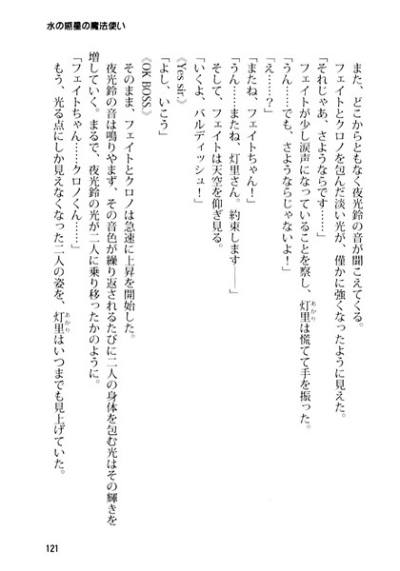 水の惑星の魔法使い
また、どこからともなく夜光鈴の音が聞こえてくる。
フェイトとクロノを包んだ淡い光が、僅かに強くなったように見えた。
「それじゃあ、さようならです……」
フェイトが少し涙声になっていることを察し、灯里は慌てて手を振った。
あかり
「うん……でも、さようならじゃないよ！」
「え……？」
「またね、フェイトちゃん！」
「うん……またね、灯里さん。約束します――」
そして、フェイトは天空を仰ぎ見る。
「いくよ、バルディッシュ！」
《Yes sir.》
「よし、いこう」
《OK BOSS.》
そのまま、フェイトとクロノは急速に上昇を開始した。
夜光鈴の音は鳴りやまず、その音色が繰り返されるたびに二人の身体を包む光はその輝きを
増していく。まるで、夜光鈴の光が二人に乗り移ったかのように。
「フェイトちゃん……クロノくん……」
もう、光る点にしか見えなくなった二人の姿を、灯里はいつまでも見上げていた。
あかり
121